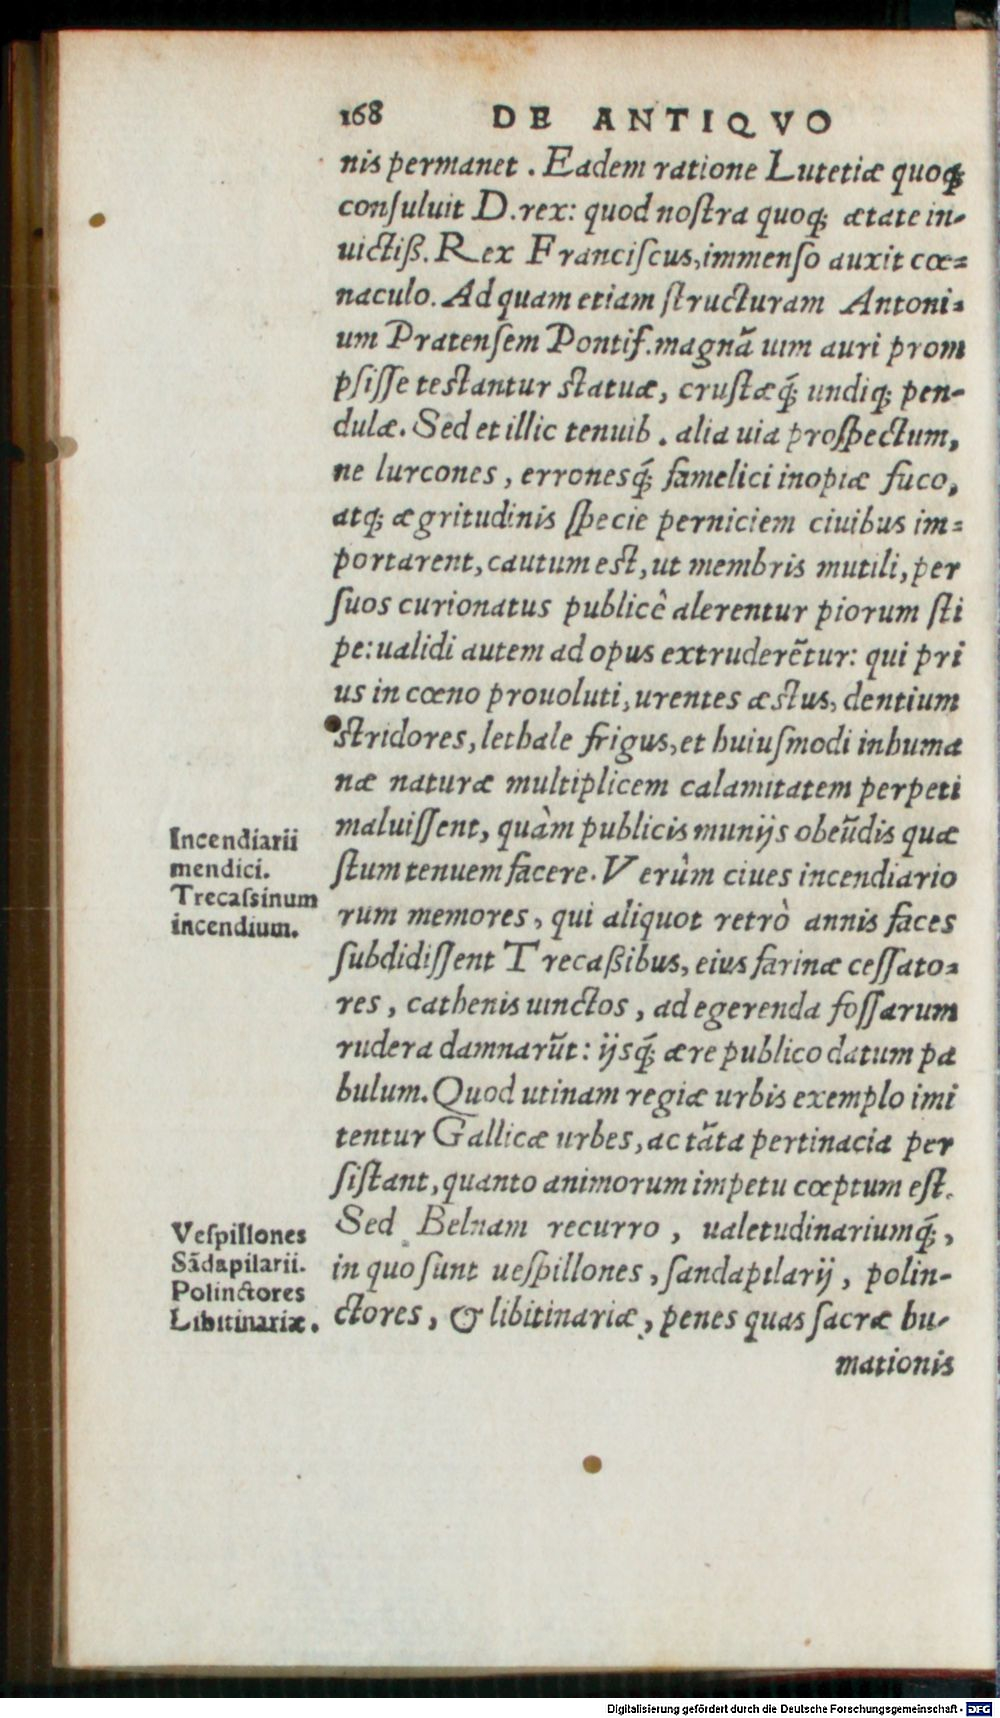 168 DE ANTIQVO
nis permanet . Eadem ratione Lutetiæ quoqꝫ
conſuluit D. rex: quod noſtra quoqꝫ ætate in-
uictiß. Rex Franciſcus, immenſo auxit cœ=
naculo. Ad quam etiam ſtructuram Antoni=
um Pratenſem Pontif. magnã uim auri prom
pſiſſe teſtantur ſtatuæ, cruſtæq́ꝫ undiqꝫ pen-
dulæ. Sed et illic tenuib . alia uia proſpectum,
ne lurcones , erronesq́ꝫ famelici inopiæ fuco,
atqꝫ ægritudinis ſpecie perniciem ciuibus im=
portarent, cautum eſt, ut membris mutili, per
ſuos curionatus publicê alerentur piorum ſti
pe: ualidi autem ad opus extruderẽtur: qui pri
us in cœno prouoluti, urentes æſtus, dentium
ſtridores, lethale frigus, et huiuſmodi inhuma
næ naturæ multiplicem calamitatem perpeti
maluiſſent, quàm publicis munijs obeũdis quæ
ſtum tenuem facere. Verûm ciues incendiario
rum memores , qui aliquot retrò annis faces
ſubdidiſſent Trecaßibus, eius farinæ ceſſato=
res , cathenis uinctos , ad egerenda foſſarum
rudera damnarũt: ijsq́ꝫ ære publico datum pa
bulum. Quod utinam regiæ urbis exemplo imi
tentur Gallicæ urbes, ac tãta pertinacia per
ſiſtant, quanto animorum impetu cœptum eſt.
Sed Belnam recurro , ualetudinariumq́ꝫ,
in quo ſunt ueſpillones , ſandapilarij , polin-
ctores, & libitinariæ, penes quas ſacræ hu-
mationis
Incendiarii
mendici.
Trecaſsinum
incendium.
Veſpillones
Sãdapilarii.
Polinctores
Libitinariæ.
Digitalisierung gefördert durch die Deutsche Forschungsgemeinschaft - DFG